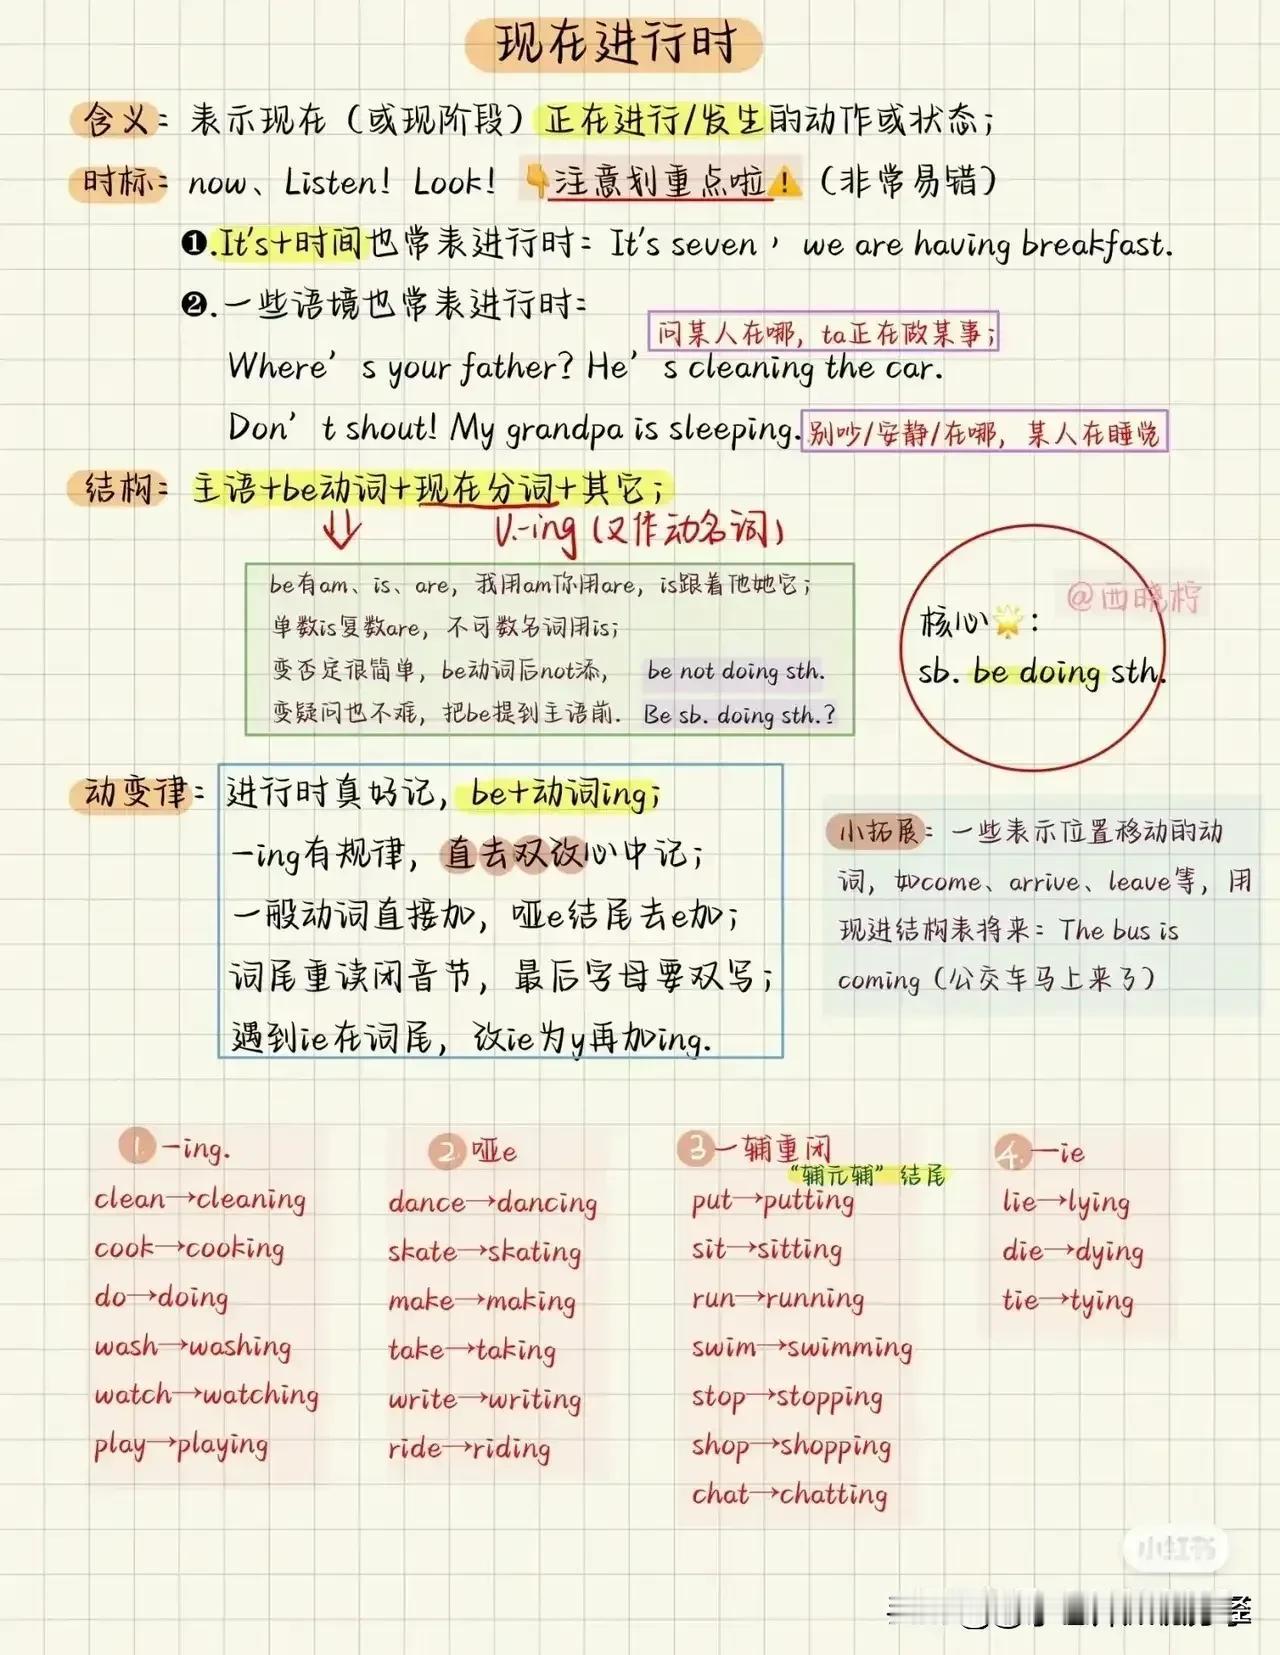 现在进行时
含义：表示现在（或现阶段）正在进行/发生的动作或状态；
时标：now、Listen！Look！👇注意划重点啦⚠️（非常易错）
❶.It's+时间也常表进行时：It's seven，we are having breakfast.
❷.一些语境也常表进行时：
问某人在哪，ta正在做某事；
Where's your father? He's cleaning the car.
Don't shout! My grandpa is sleeping.
别吵/安静/在哪，某人在睡觉
结构：主语+be动词+现在分词+其它；
V.-ing（又作动名词）
be有am、is、are，我用am你用are，is跟着他她它；
单数is复数are，不可数名词用is；
变否定很简单，be动词后not添， be not doing sth.
变疑问也不难，把be提到主语前. Be sb. doing sth.?
@西晓柠
核心🌟：
sb. be doing sth.
动变律：进行时真好记，be+动词ing；
-ing有规律，直去双改心中记；
一般动词直接加，哑e结尾去e加；
词尾重读闭音节，最后字母要双写；
遇到ie在词尾，改ie为y再加ing.
小拓展：一些表示位置移动的动
词，如come、arrive、leave等，用
现进结构表将来：The bus is
coming（公交车马上来了）
1. -ing.
clean→cleaning
cook→cooking
do→doing
wash→washing
watch→watching
play→playing
2. 哑e
dance→dancing
skate→skating
make→making
take→taking
write→writing
ride→riding
3 一辅重闭
“辅元辅”结尾
put→putting
sit→sitting
run→running
swim→swimming
stop→stopping
shop→shopping
chat→chatting
4. -ie
lie→lying
die→dying
tie→tying
小红书